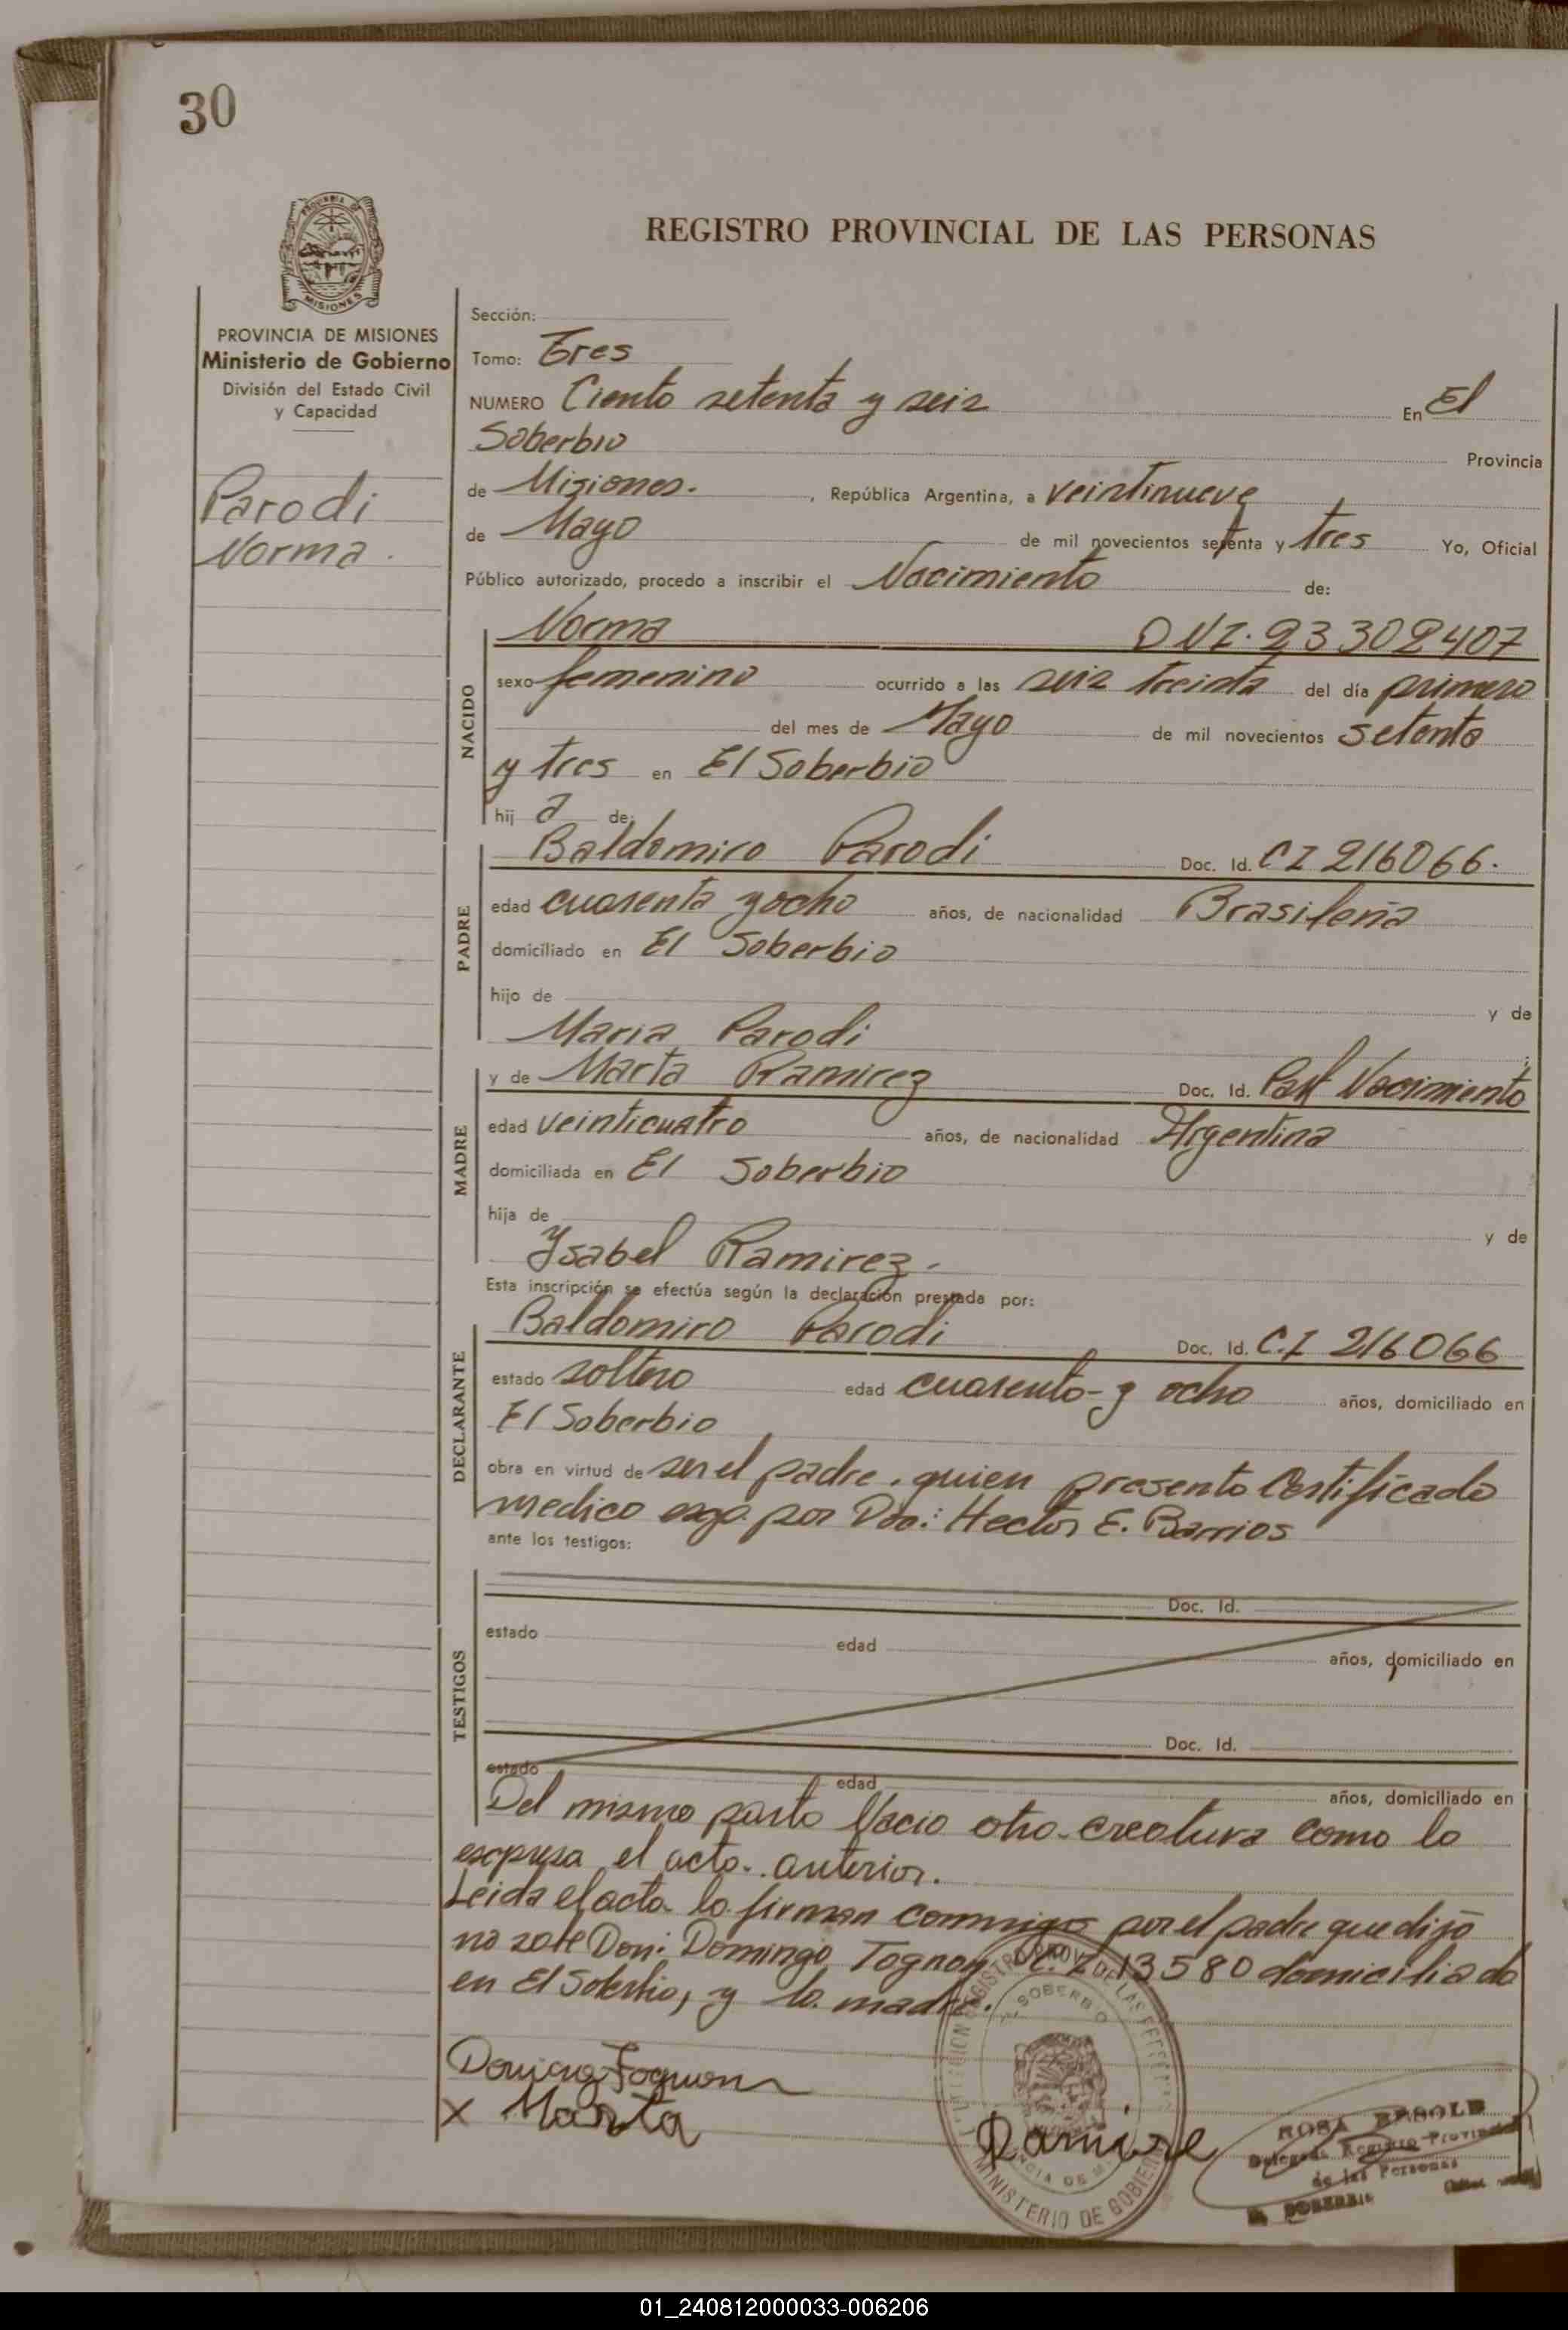 30
REGISTRO PROVINCIAL DE LAS PERSONAS
PROVINCIA DE MISIONES
Ministerio de Gobierno
División del Estado Civil
y Capacidad
Parodi
Norma.
Sección:
Tomo: Tres
NUMERO Ciento setenta y seis En El
Soberbio Provincia
de Misiones. , República Argentina, a veintinueve
de Mayo de mil novecientos setenta y tres Yo, Oficial
Público autorizado, procedo a inscribir el Nacimiento de:
NACIDO
Norma DNI. 23302407
sexo femenino ocurrido a las seis treinta del día primero
del mes de Mayo de mil novecientos setenta
y tres en El Soberbio
hij a de:
PADRE
Baldomiro Parodi Doc. Id. CI 216066.
edad cuarenta y ocho años, de nacionalidad Brasileña
domiciliado en El Soberbio
hijo de y de
Maria Parodi
MADRE
y de Marta Ramirez Doc. Id. Part Nacimiento
edad veinticuatro años, de nacionalidad Argentina
domiciliada en El Soberbio
hija de y de
Ysabel Ramirez.
Esta inscripción se efectúa según la declaración prestada por:
DECLARANTE
Baldomiro Parodi Doc. Id. C.I 216066
estado soltero edad cuarenta y ocho años, domiciliado en
El Soberbio
obra en virtud de ser el padre. quien presento Certificado
medico por Hector E. Barrios
ante los testigos:
TESTIGOS
Doc. Id.
estado edad años, domiciliado en
Doc. Id.
estado edad años, domiciliado en
Del mismo parto Nacio otra creatura como lo
expresa el acta anterior.
Leida el acta la firman conmigo por el padre que dijo
no Don: Domingo Tognon C.I 13580 domiciliado
en El Soberbio, y la madre.
Domingo Tognon
x Marta Ramire
REGISTRO PROV. DE LAS PERSONAS
EL SOBERBIO
MINISTERIO DE GOBIERNO
ROSA
Delegada Registro Provincial
de las Personas
EL SOBERBIO
01_240812000033-006206